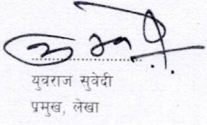 युवराज सुवेदी
प्रमुख, लेखा